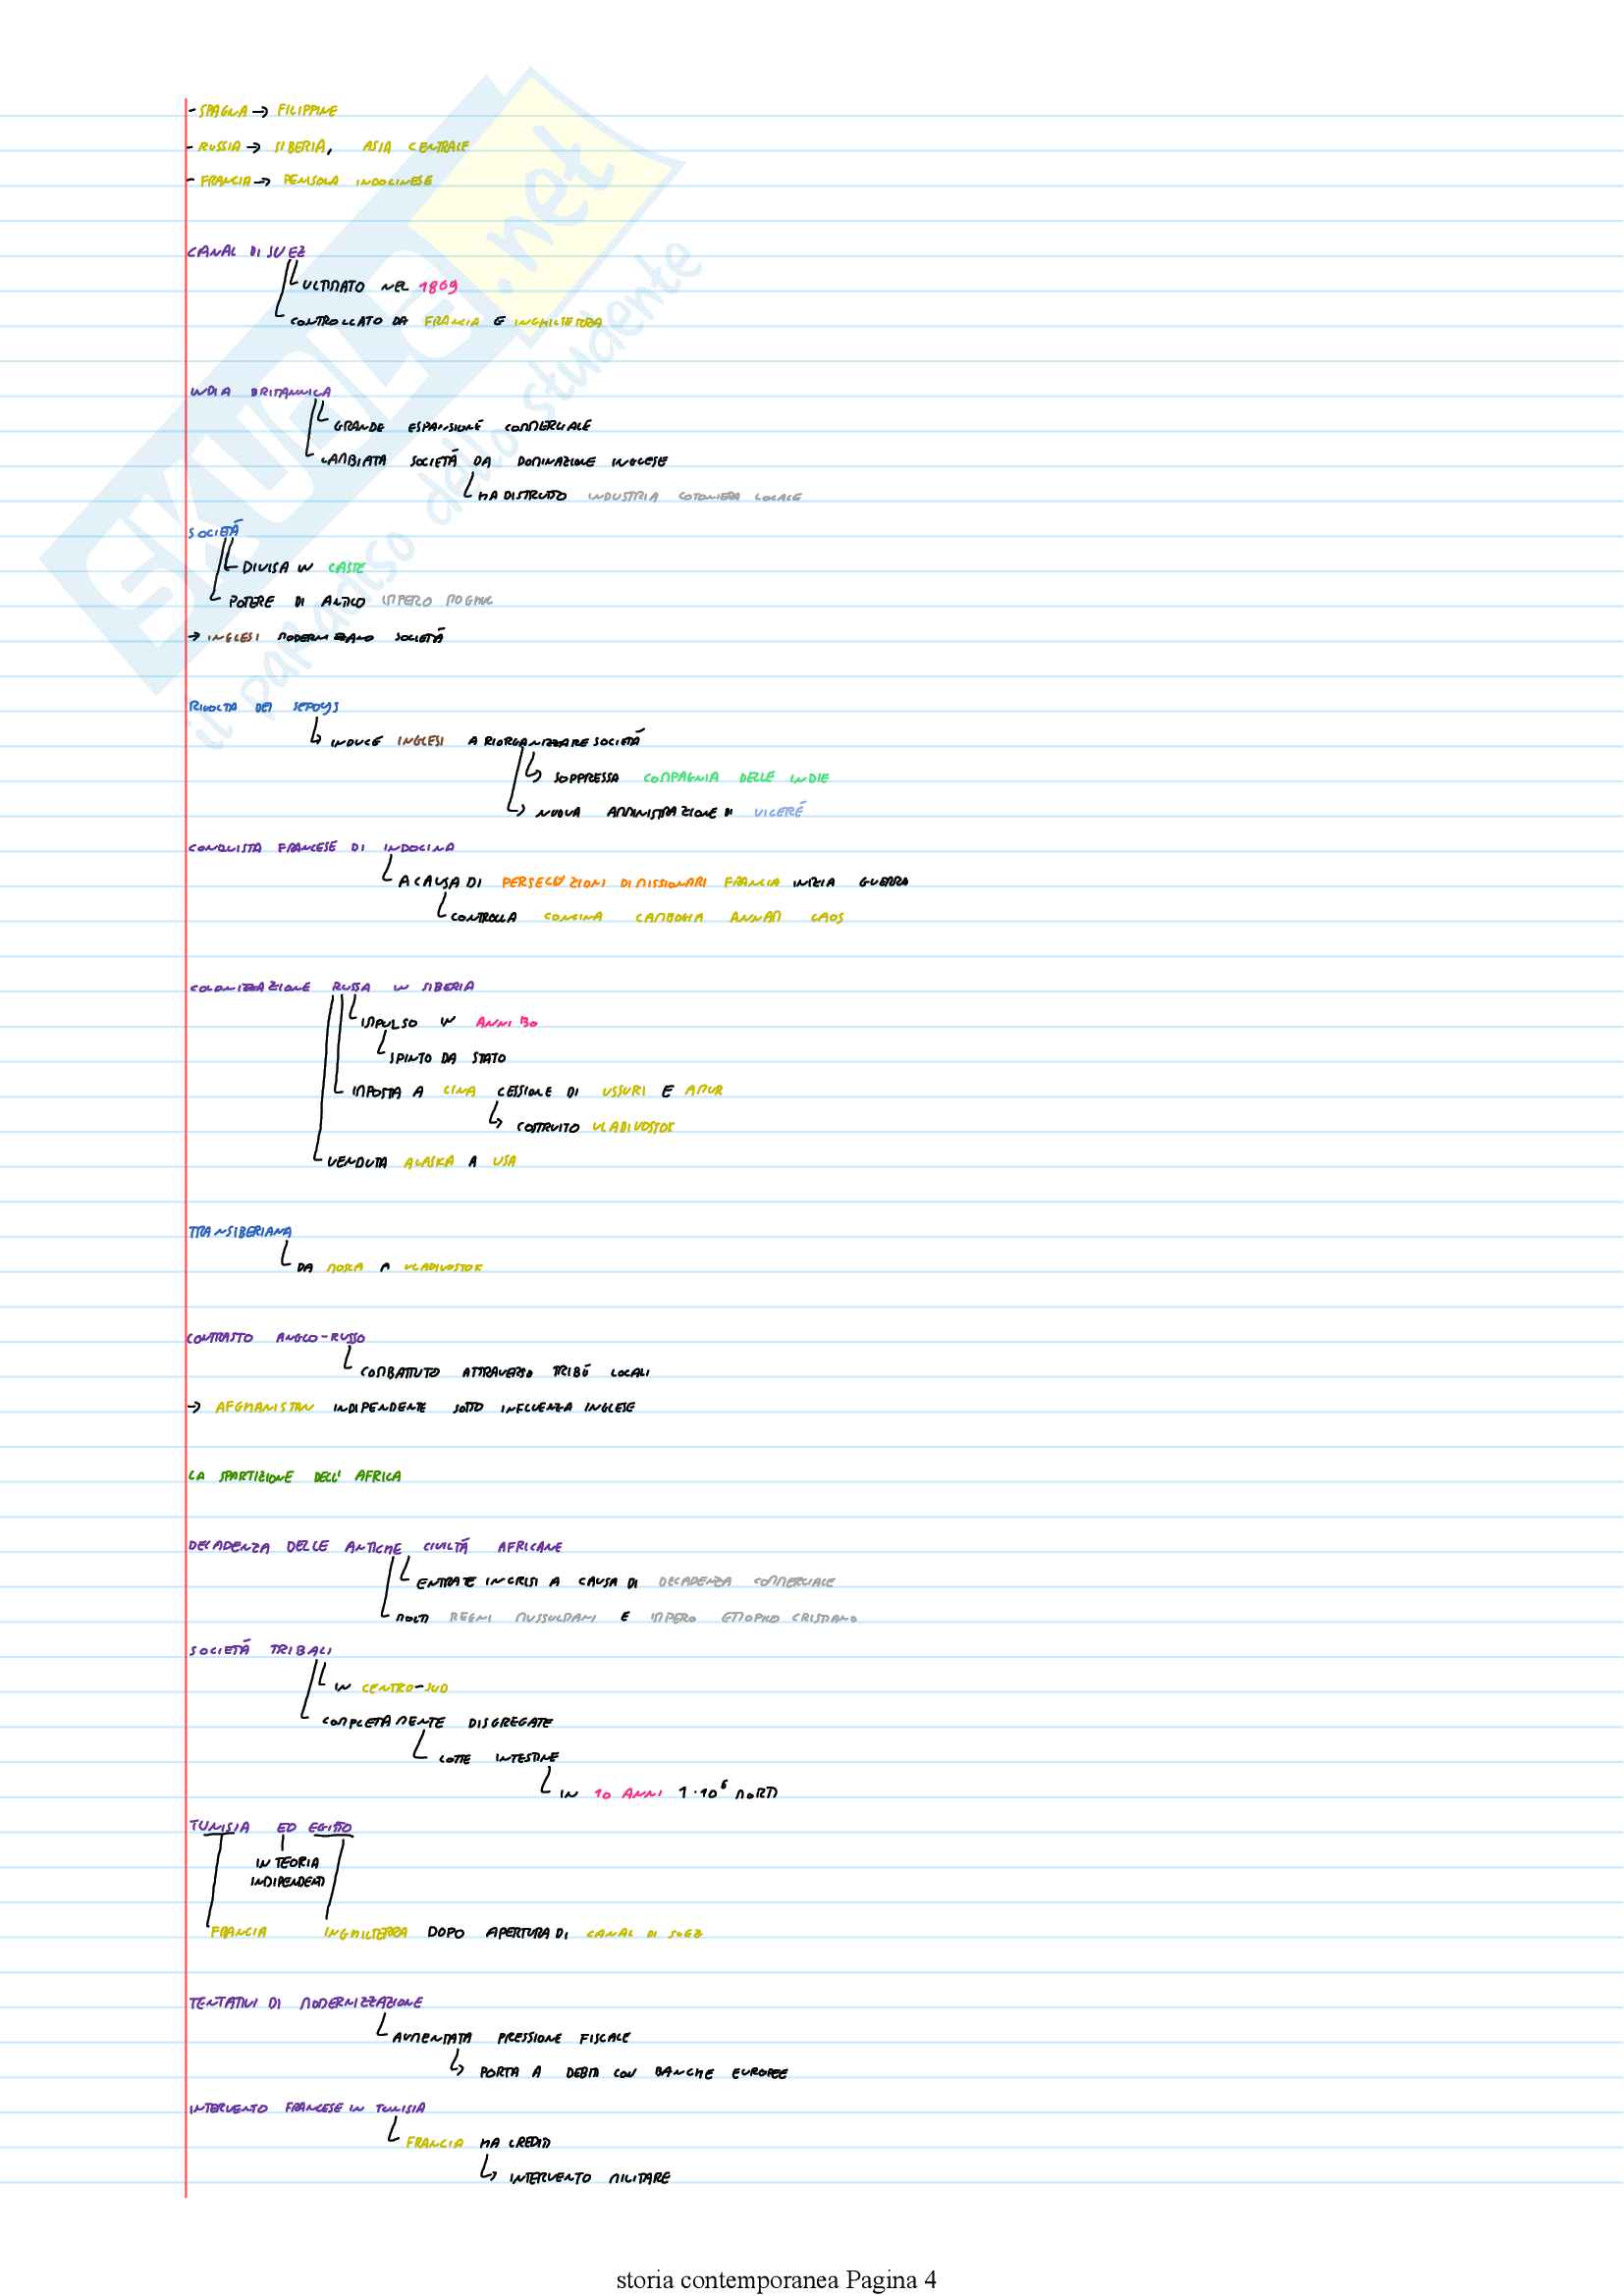 - SPAGNA → FILIPPINE
- RUSSIA → SIBERIA, ASIA CENTRALE
- FRANCIA → PENISOLA INDOCINESE
CANAL DI SUEZ
ULTIMATO NEL 1869
CONTROLLATO DA FRANCIA E INGHILTERRA
INDIA BRITANNICA
GRANDE ESPANSIONE COMMERCIALE
CAMBIATA SOCIETÁ DA DOMINAZIONE INGLESE
HA DISTRUTTO INDUSTRIA COTONIERA LOCALE
SOCIETÁ
DIVISA IN CASTE
POTERE DI ANTICO IMPERO MOGHUL
→ INGLESI MODERNIZZANO SOCIETÁ
RIVOLTA DEI SEPOYS
INDUCE INGLESI A RIORGANIZZARE SOCIETÁ
SOPPRESSA COMPAGNIA DELLE INDIE
NUOVA AMMINISTRAZIONE DI VICERÉ
CONQUISTA FRANCESE DI INDOCINA
A CAUSA DI PERSECUZIONI DI MISSIONARI FRANCIA INIZIA GUERRA
CONTROLLA CONCINA CAMBOGIA ANNAM LAOS
COLONIZZAZIONE RUSSA IN SIBERIA
IMPULSO IN ANNI 30
SPINTO DA STATO
IMPOSTA A CINA CESSIONE DI USSURI E AMUR
COSTRUITO VLADIVOSTOK
VENDUTA ALASKA A USA
TRANSIBERIANA
DA MOSCA A VLADIVOSTOK
CONTRASTO ANGLO-RUSSO
COMBATTUTO ATTRAVERSO TRIBÚ LOCALI
→ AFGHANISTAN INDIPENDENTE SOTTO INFLUENZA INGLESE
LA SPARTIZIONE DELL' AFRICA
DECADENZA DELLE ANTICHE CIVILTÁ AFRICANE
ENTRATE IN CRISI A CAUSA DI DECADENZA COMMERCIALE
MOLTI REGNI MUSSULMANI E IMPERO ETIOPICO CRISTIANO
SOCIETÁ TRIBALI
IN CENTRO-SUD
COMPLETAMENTE DISGREGATE
LOTTE INTESTINE
IN 10 ANNI 1·10⁶ MORTI
TUNISIA ED EGITTO
IN TEORIA
INDIPENDENTI
FRANCIA INGHILTERRA DOPO APERTURA DI CANAL DI SUEZ
TENTATIVI DI MODERNIZZAZIONE
AUMENTATA PRESSIONE FISCALE
PORTA A DEBITI CON BANCHE EUROPEE
INTERVENTO FRANCESE IN TUNISIA
FRANCIA HA CREDITI
INTERVENTO MILITARE
storia contemporanea Pagina 4
SKUOLA.net
il paradiso dello studente